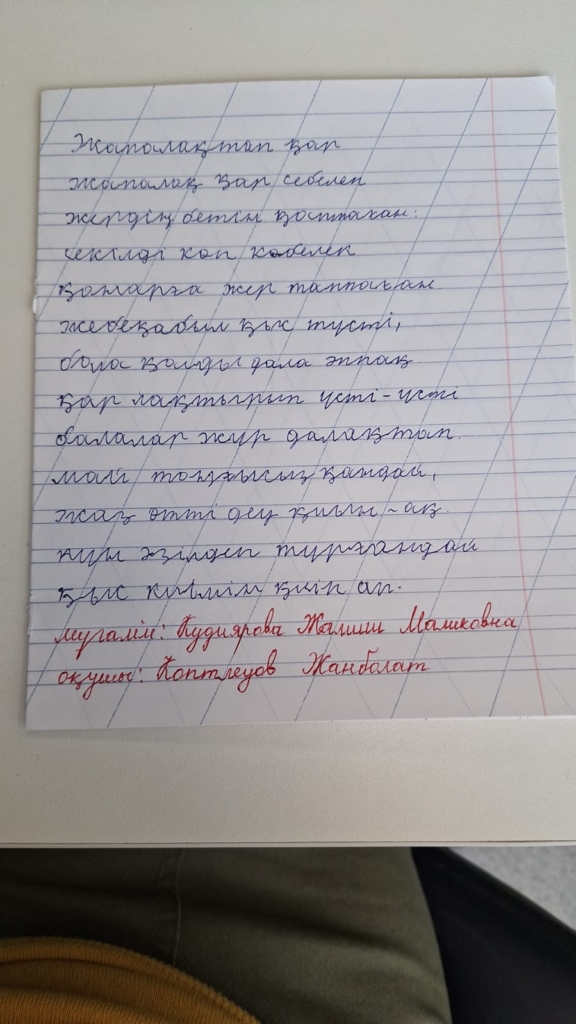 Жапалақтап қар
жапалақ қар себелеп
жердің бетін қаптаған.
секілді көп көбелек
қонарға жер таппаған
жебеқабыл қыс түсті,
бола қалды дала әппақ
қар лақтырып үсті-үсті
балалар жүр далақтап.
май тоңғысыз қандай,
жаз өтті деу қиын-ақ.
күн әзілдеп тұрғандай
қыс киімін киіп ап.
мұғалім: Кудиярова Жамиш Маликовна
оқушы: Коптлеуов Жанболат